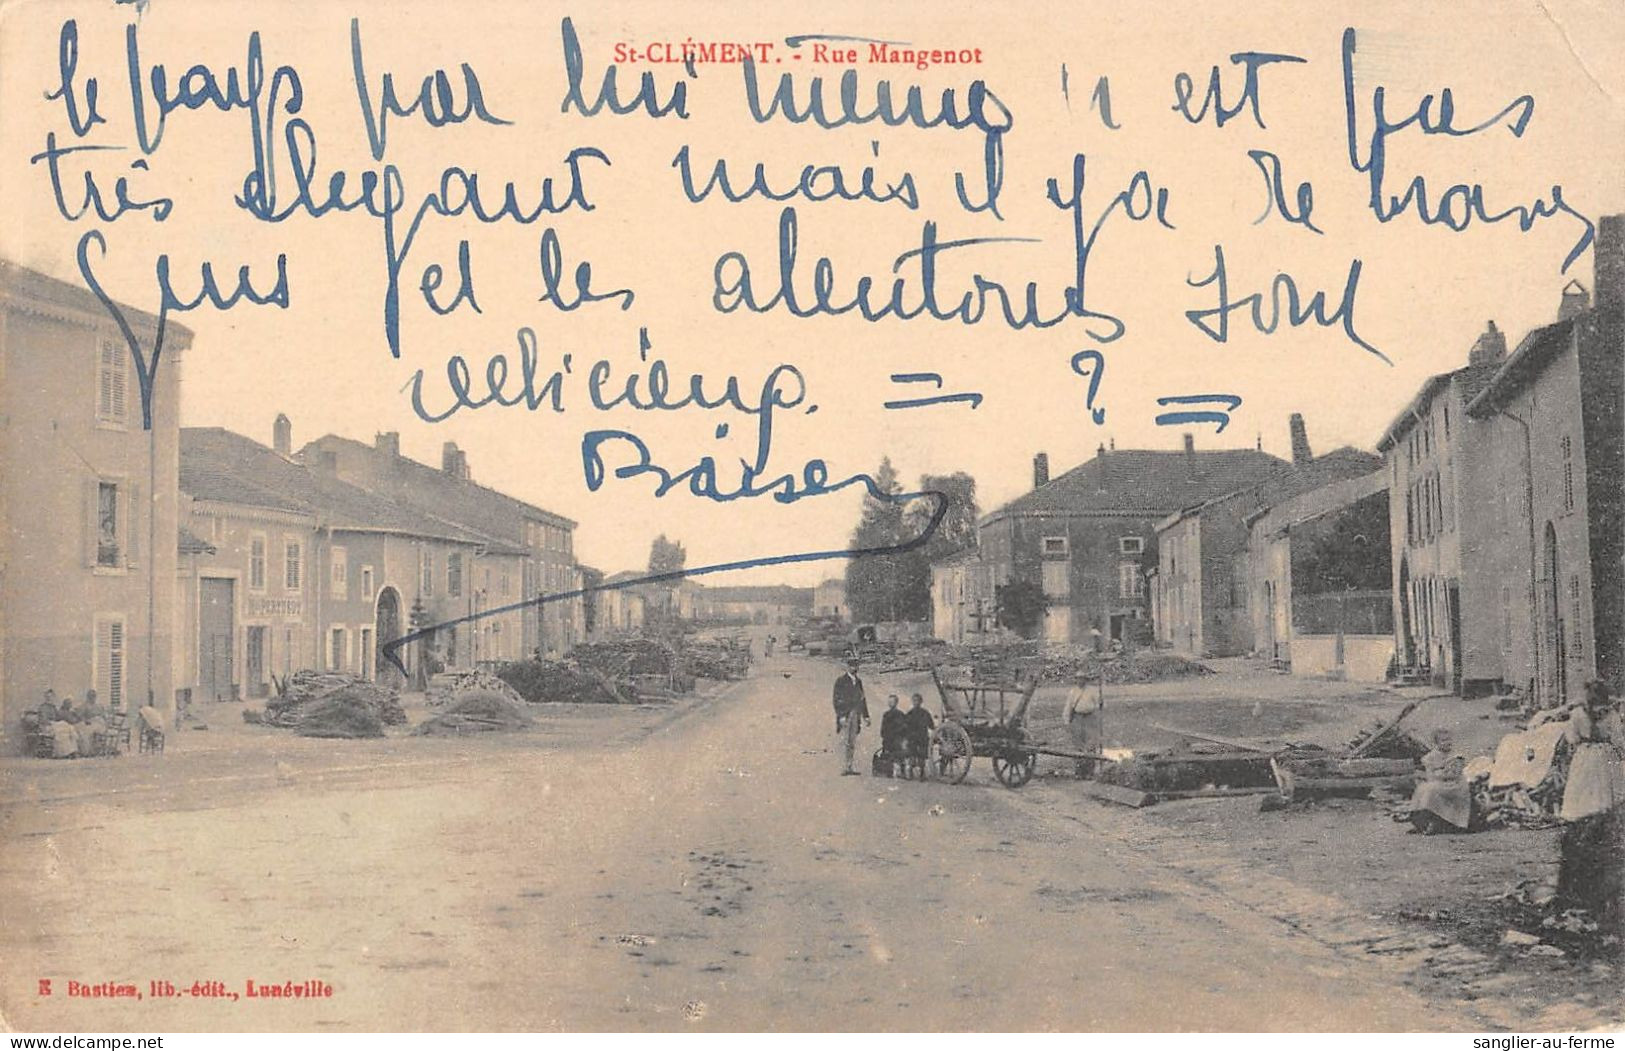 St-CLÉMENT. - Rue Mangenot
le pays par lui même n est pas
très élégant mais il y a de braves
gens et les alentours sont
délicieux. = ? =
Baiser
E Bastien, lib.-édit., Lunéville
sanglier-au-ferme